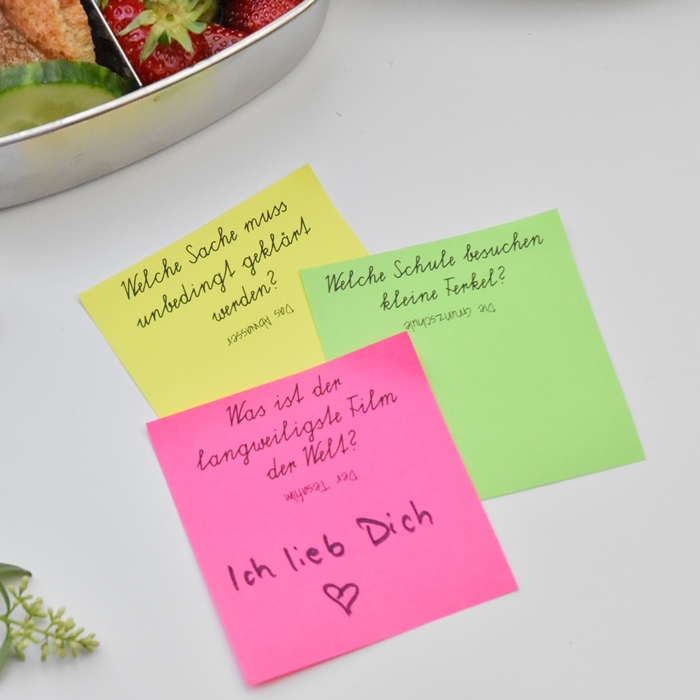 Welche Sache muss
unbedingt geklärt
werden?
Das Abwasser
Welche Schule besuchen
kleine Ferkel?
Die Grunzschule
Was ist der
langweiligste Film
der Welt?
Der Tesafilm
Ich lieb Dich